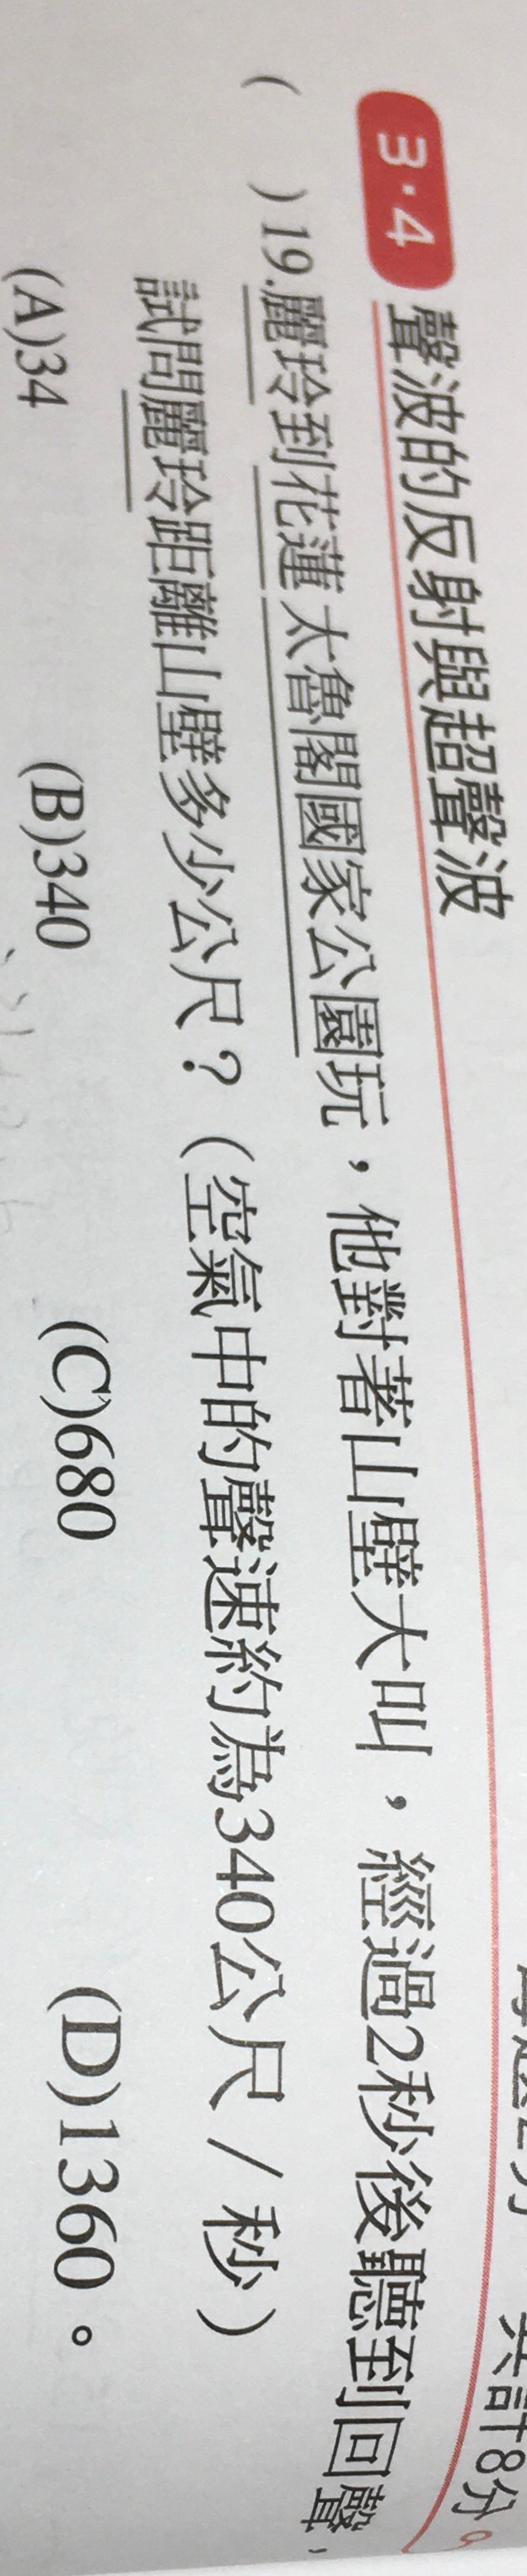 3·4 聲波的反射與超聲波
共計8分
( )19.麗玲到花蓮太魯閣國家公園玩，他對著山壁大叫，經過2秒後聽到回聲，
試問麗玲距離山壁多少公尺？（空氣中的聲速約為340公尺／秒）
(A)34 (B)340 (C)680 (D)1360。